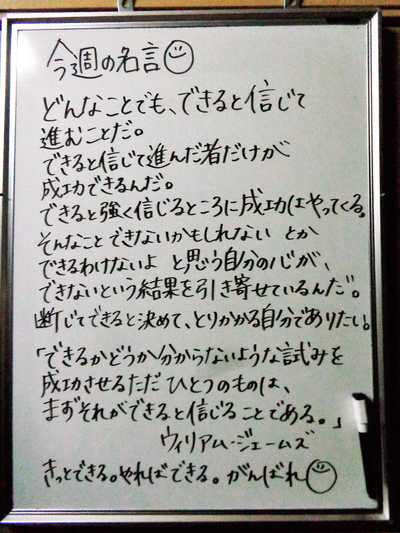 今週の名言
どんなことでも、できると信じて
進むことだ。
できると信じて進んだ者だけが
成功できるんだ。
できると強く信じるところに成功はやってくる。
そんなことできないかもしれない とか
できるわけないよ と思う自分の心が、
できないという結果を引き寄せているんだ。
断じてできると決めて、とりかかる自分でありたい。
「できるかどうか分からないような試みを
成功させるただひとつのものは、
まずそれができると信じることである。」
ウィリアム・ジェームズ
きっとできる。やればできる。がんばれ